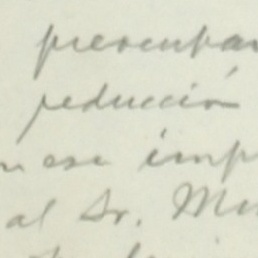 preocupan
reducción
n ese imp
al Sr. Mu